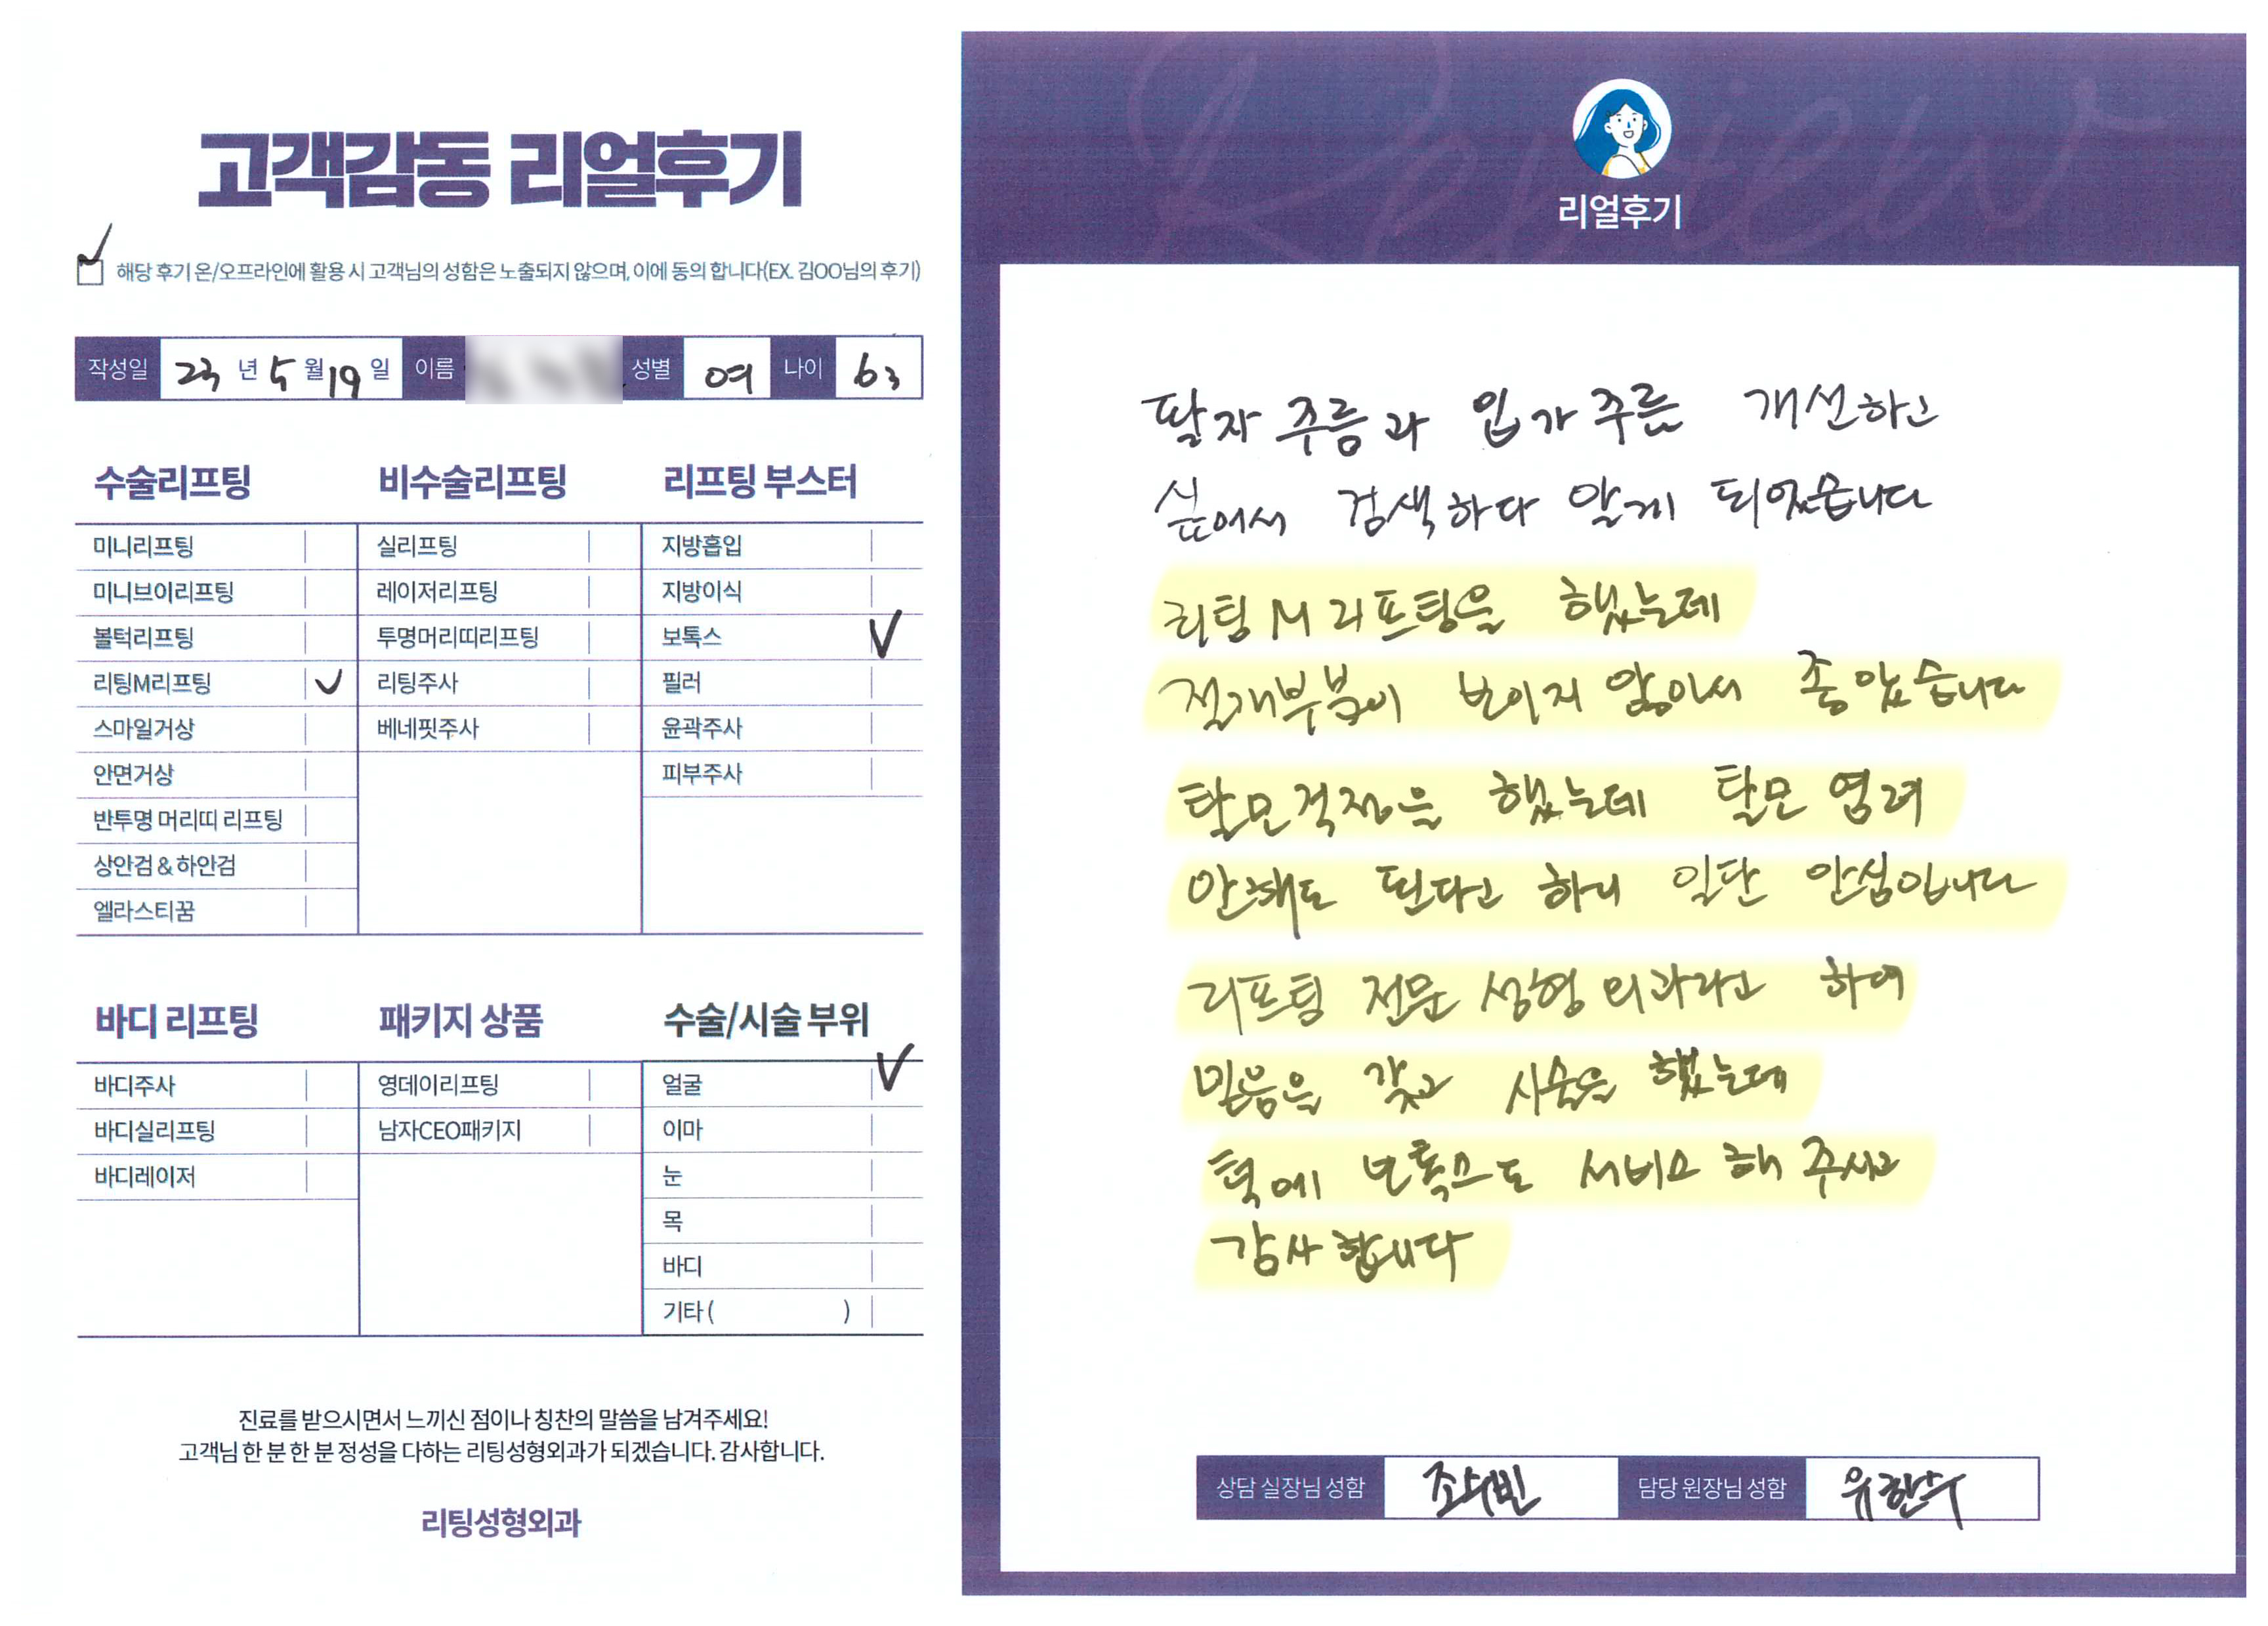 고객감동 리얼후기
해당 후기 온/오프라인에 활용 시 고객님의 성함은 노출되지 않으며, 이에 동의 합니다(EX. 김OO님의 후기)
작성일 23 년 5 월 19 일 이름 성별 여 나이 63
수술리프팅
미니리프팅
미니브이리프팅
볼턱리프팅
리팅M리프팅
스마일거상
안면거상
반투명 머리띠 리프팅
상안검 & 하안검
엘라스티꿈
비수술리프팅
실리프팅
레이저리프팅
투명머리띠리프팅
리팅주사
베네핏주사
리프팅 부스터
지방흡입
지방이식
보톡스
필러
윤곽주사
피부주사
바디 리프팅
바디주사
바디실리프팅
바디레이저
패키지 상품
영데이리프팅
남자CEO패키지
수술/시술 부위
얼굴
이마
눈
목
바디
기타 ( )
진료를 받으시면서 느끼신 점이나 칭찬의 말씀을 남겨주세요!
고객님 한 분 한 분 정성을 다하는 리팅성형외과가 되겠습니다. 감사합니다.
리팅성형외과
Review
리얼후기
팔자 주름과 입가 주름 개선하고
싶어서 검색하다 알게 되었습니다
리팅 M 리프팅을 했는데
절개부분이 보이지 않아서 좋았습니다
탈모걱정을 했는데 탈모 염려
안해도 된다고 하니 일단 안심입니다
리프팅 전문 성형외과라고 하여
믿음을 갖고 시술을 했는데
턱에 보톡스도 서비스 해 주시고
감사합니다
상담 실장님 성함 조수빈 담당 원장님 성함 유한수